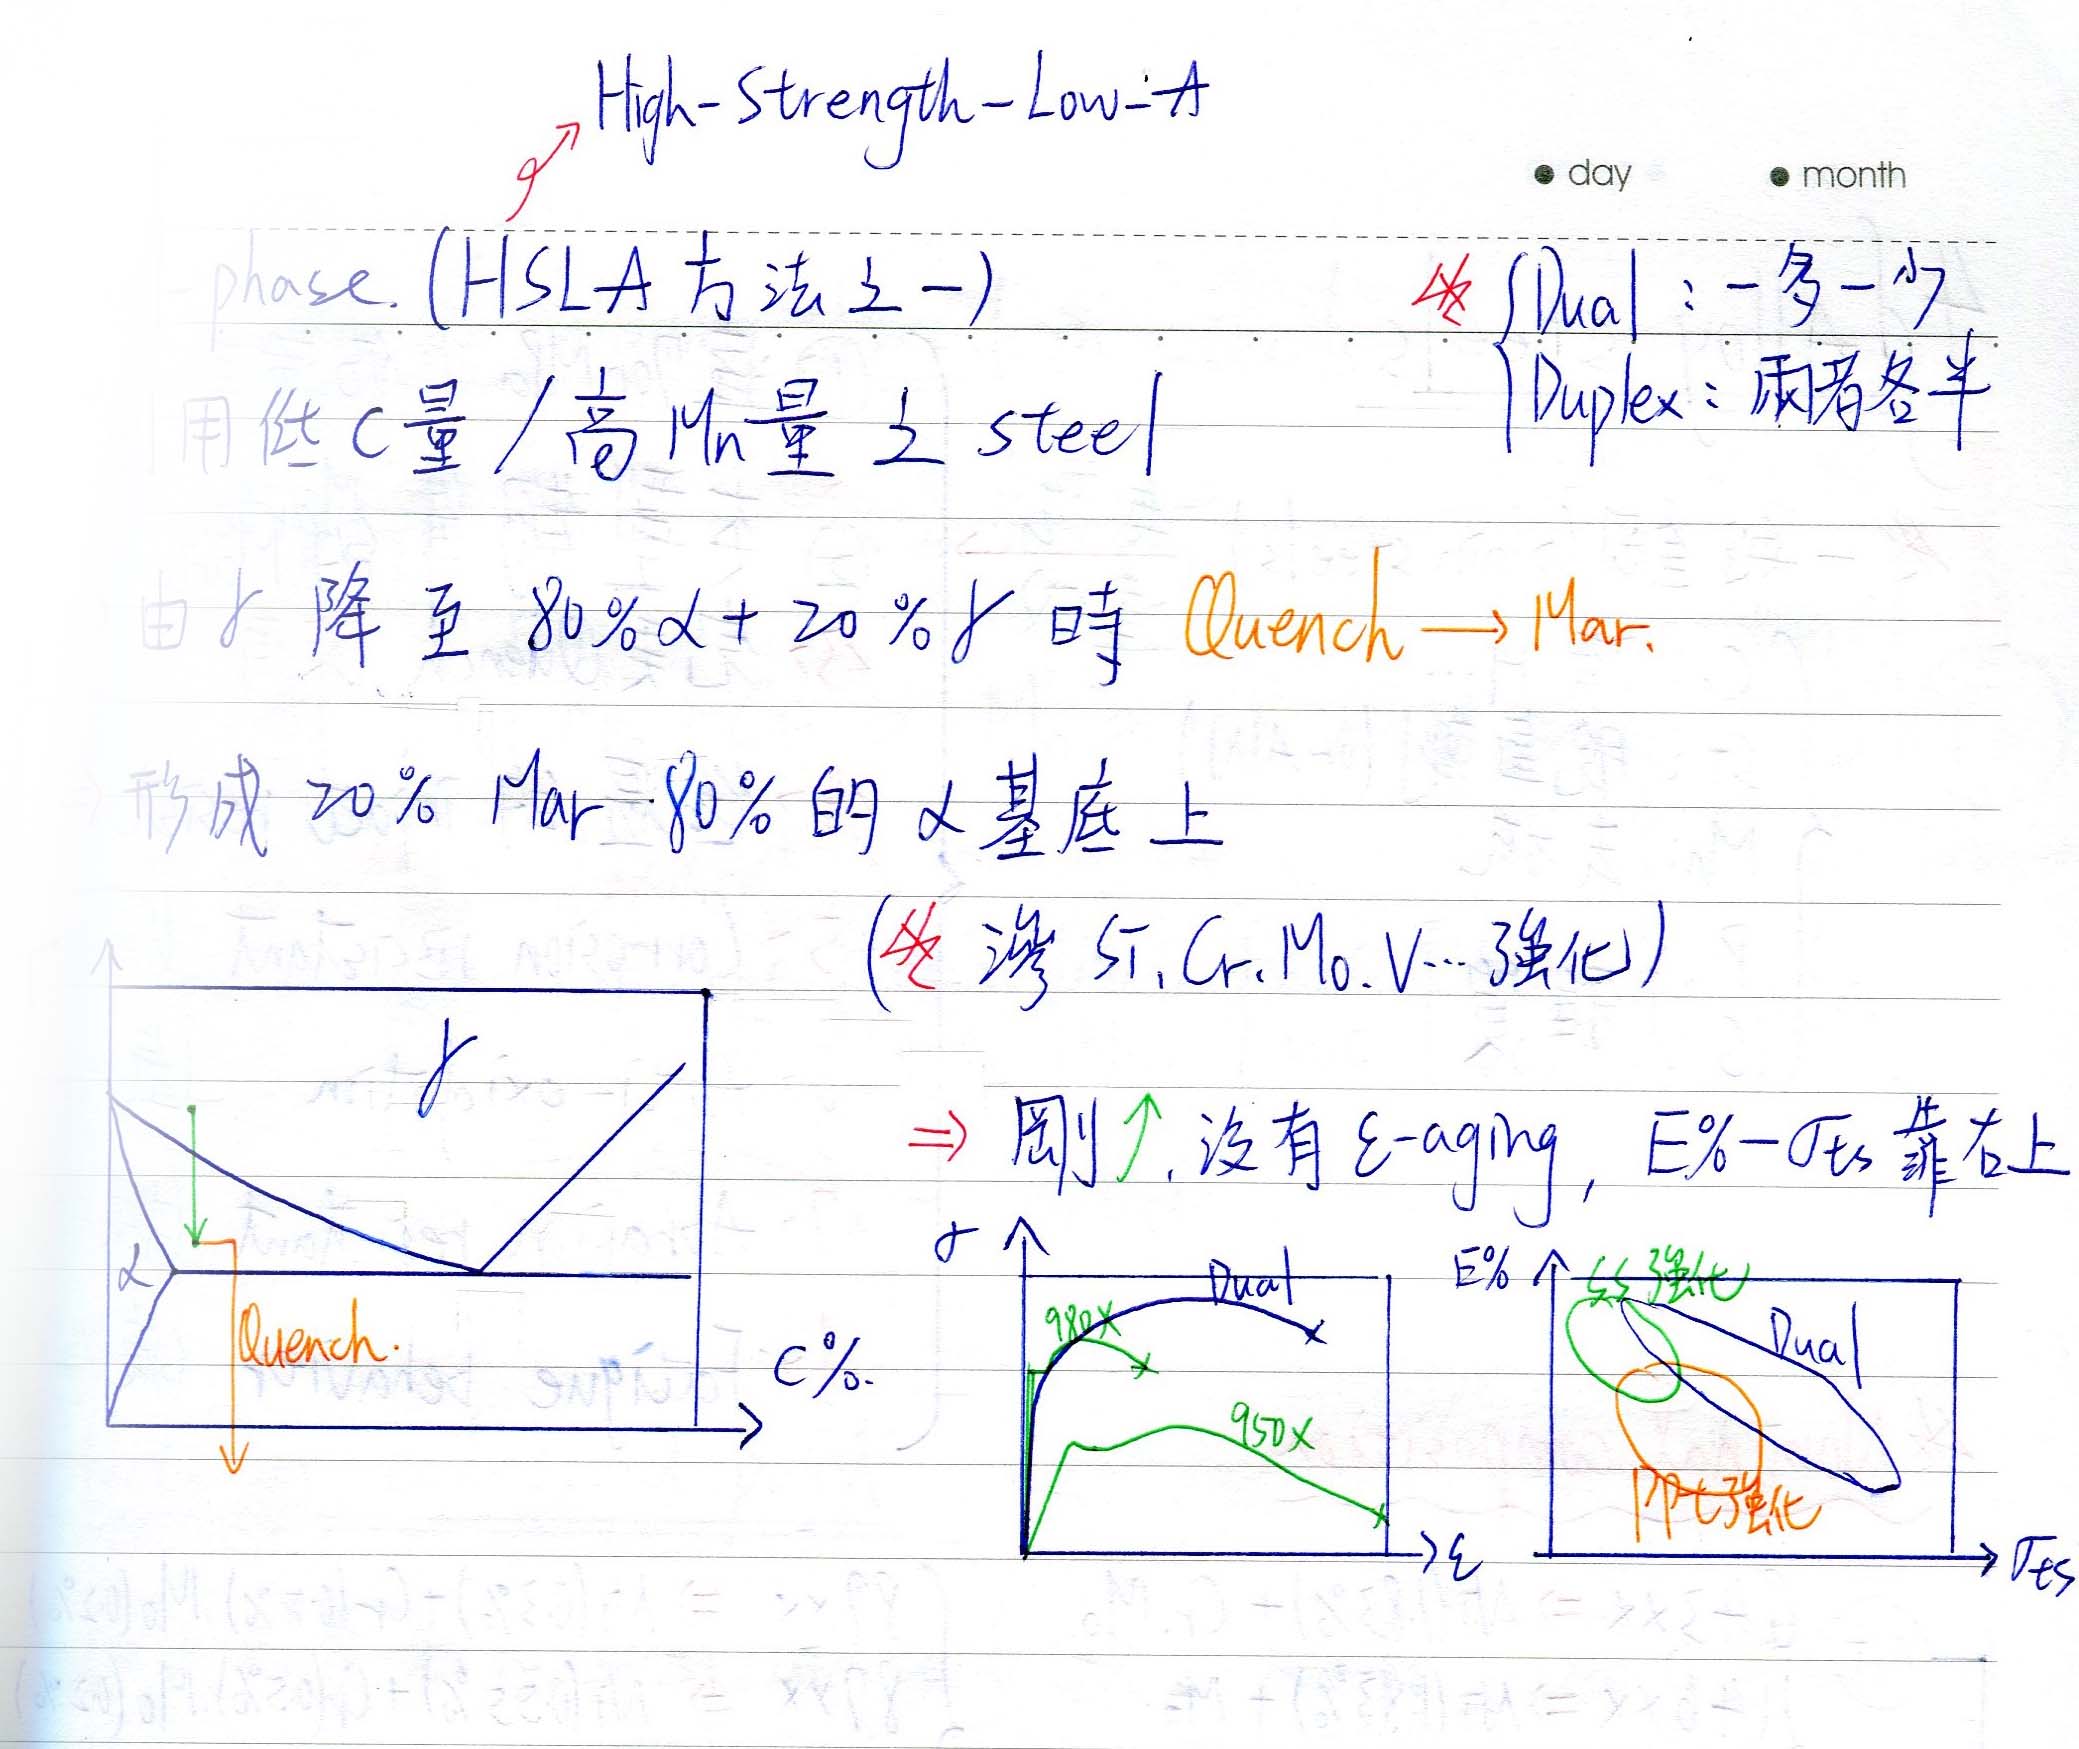 High-Strength-Low-A
day month
-phase. (HSLA方法之一)
※ Dual:一多一少
Duplex:兩者各半
用低C量/高Mn量之steel
由γ降至80%α+20%γ時 Quench→Mar.
形成20% Mar 80%的α基底上
(※ 滲 Si. Cr. Mo. V…強化)
γ
⇒ 剛↑. 沒有ε-aging, E%-σts靠右上
α
Quench.
C%.
σ
Dual
980X
950X
ε
E%
SS強化
Dual
PPt強化
σts